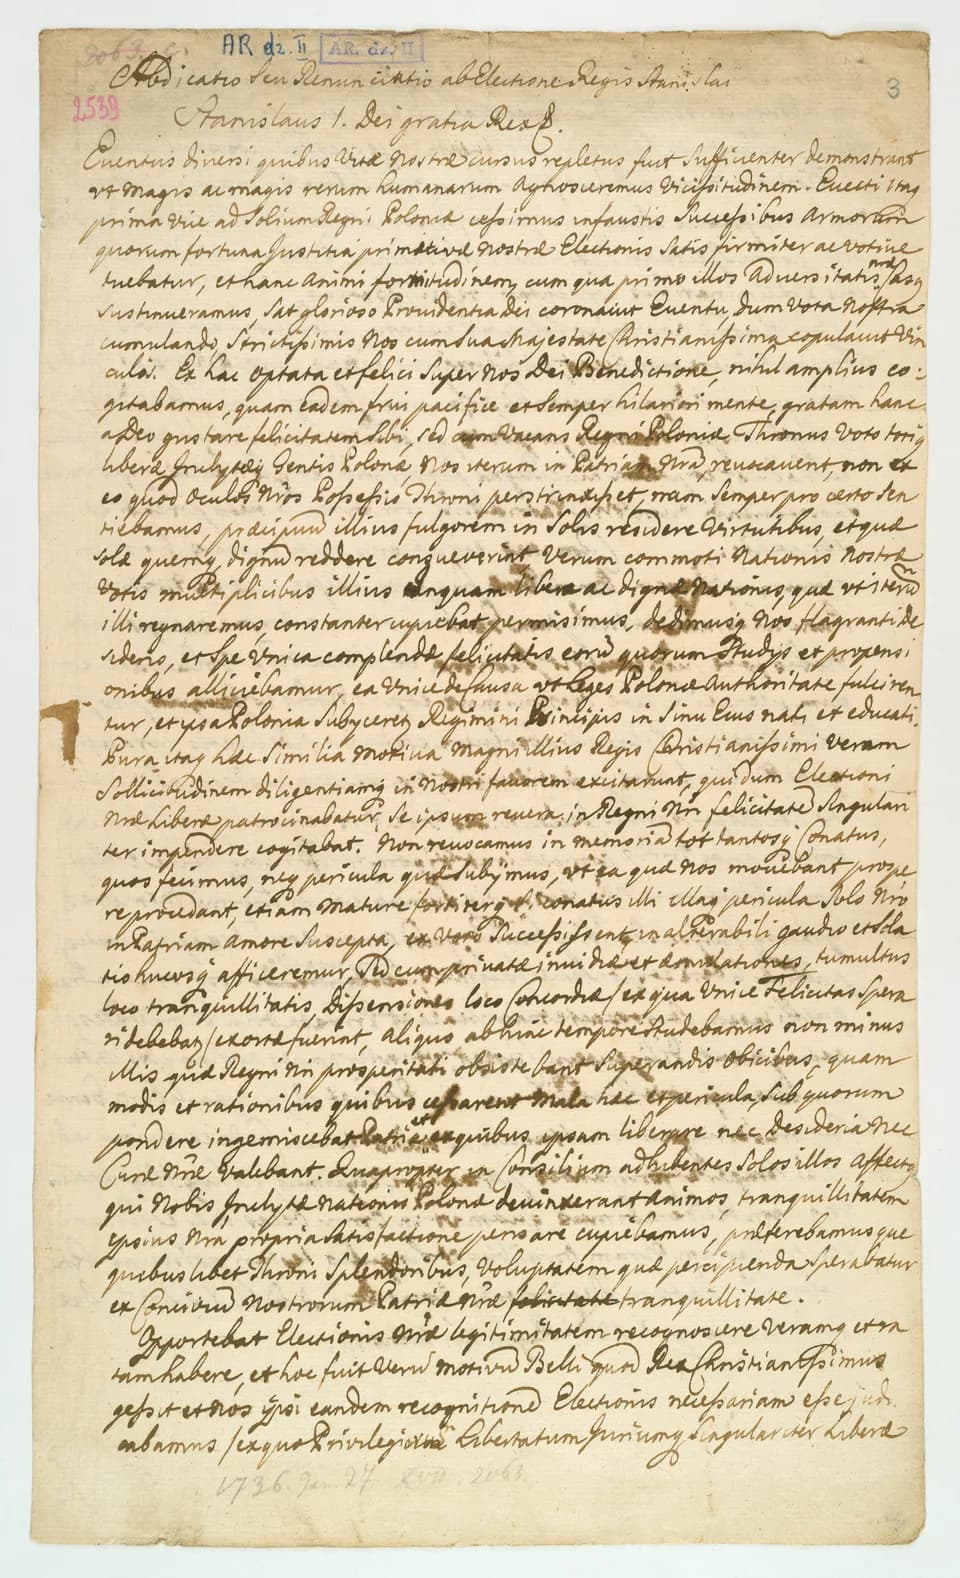 2063. c.
AR dz. II AR. dz. II
Abdicatio seu Renunciatio ab Electione Regis Stanislai
3
2539
Stanislaus I. Dei gratia Rex &.
Eventus diversi quibus Vitæ Nostræ cursus repletus fuit sufficienter demonstrant
vt magis ac magis rerum humanarum agnosceremus vicissitudinem. Evecti itaq
prima vice ad Solium Regni Poloniæ cessimus infaustis successibus Armorum
quorum fortuna Justitiã primitivæ nostræ Electionis satis firmiter ac votive
tuebatur, et hanc animi fortitudinem, cum qua primo illos Adversitatis nræ Casq
sustinueramus, sat glorioso Providentia Dei coronavit Eventu, dum Vota Nostra
cumulando, strictissimis Nos cum Sua Majestate Christianissima copulavit Vin
culis. Ex hac optata et felici super Nos Dei Benedictione, nihil amplius co:
gitabamus, quam eadem frui pacifice et semper hilariori mente, gratam hanc
a Deo gustare felicitatem Sibi, sed cum Vacans Regni Poloniæ Thronus Voto totiq
liberæ Inclytæq Gentis Polonæ, Nos iterum in Patriam Nrã, revocavent, non ex
eo quod oculos Nros Possessio Throni perstrinxisset, nam semper pro certo sen
tiebamus, præcipuum illius fulgorem in Solis residere Virtutibus, et quæ
solæ quemq, dignũ reddere consueverint, Verum commoti Nationis Nostræ
Votis multiplicibus illius tanquam liberæ ac dignæ Nationis, quæ vt iterũ
illi regnaremus, constanter cupiebat permisimus, dedimusq Nos flagranti de
siderio, et Spe Vnica complendæ felicitatis eorũ quorum Studijs et propensi
onibus alliciebamur, ea Vnice de Causa vt Leges Polonæ Authoritate fulciren
tur, et ipsa Polonia Subijceretr Regimini Principis in Sinu Eius nati et educati.
Pura itaq hæc Similia motiva Magni illius Regis Christianissimi veram
Sollicitudinem diligentiamq in Nostri favorem excitarunt, qui dum Electioni
Nræ Liberæ patrocinabatur, Se ipsum revera in Regni Nri felicitatẽ Singulari
ter impendere cogitabat. Non revocamus in memoriã tot tantosq Conatus,
quos fecimus, neq pericula quæ Subijmus, vt ea quæ Nos movebant prospe
re procedant, etiam mature fortiterq Si conatus illi illaq pericula Solo Nrõ
in Patriam Amore Suscepta, ex Voto Successissent, inalterabili gaudio et Sola
tio hucusq afficeremur, Sed cum privatæ invidiæ et æmulationes, tumultus
loco tranquillitatis, Dissensiones loco Concordiæ /ex qua Vnice Felicitas Spera
ri debebat/ exortæ fuerint, Aliquo ab hinc tempore Studebamus non minus
illis quæ Regni Nri prosperitati obsistebant Superandis Obicibus, quam
modis et rationibus quibus cessarent Mala hæc et pericula, Sub quorum
pondere ingemiscebat Patria et ex quibus ipsam liberare nec Desideria Nec
Curæ Nræ Valebant. Quapropter in Consilium adhibentes Solos illos Affectq
qui Nobis Inclytæ Nationis Polonæ devinxerant Animos, tranquillitatem
ipsius Nrã propria Satisfactione pensare cupiebamus, præferebamusque
quibuslibet Throni Splendoribus, Voluptatem quæ percipienda Sperabatur
ex Concivium Nostrorum Patriæ Nræ felicitate tranquillitate.
Opportebat Electionis Nræ legitimitatem recognoscere Veramq et ra
tam habere, et hoc fuit Verũ motivũ Belli quod Rex Christianissimus
gessit et Nos ipsi eandem recognitionẽ Electionis necessariam esse judi
cabamus /ex quo Privilegiorum Libertatum Juriumq Singulariter Liberæ
1736. Jan. 27. XVII. 2063.